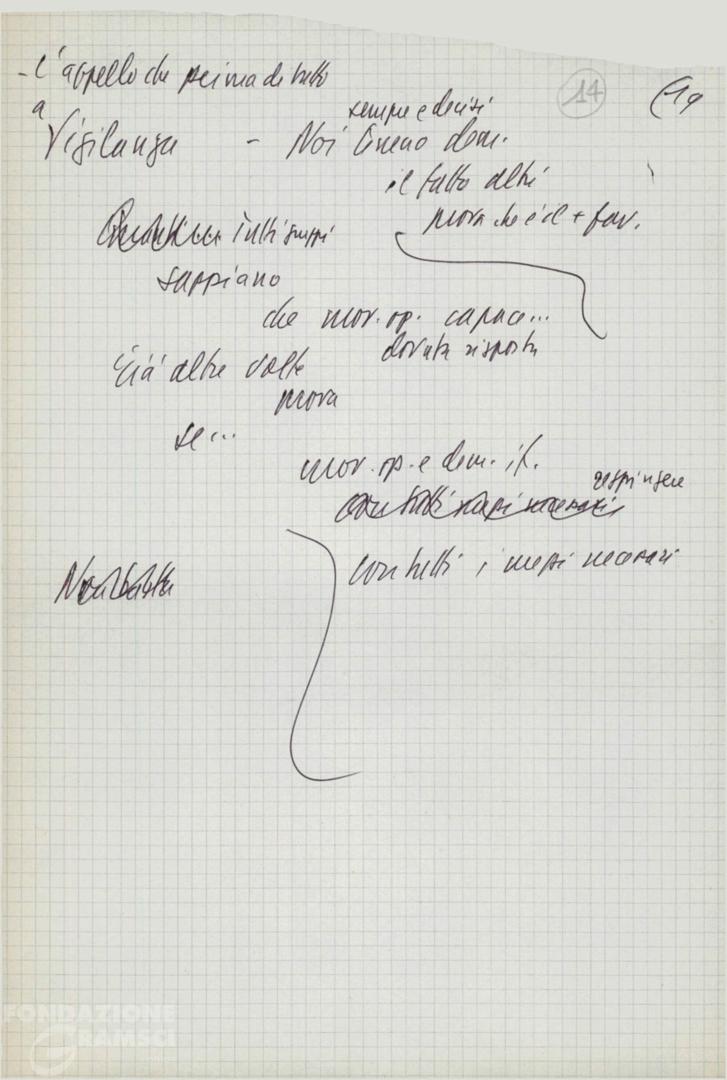 - L'appello che prima di tutto
14
(19
a
sempre e decisi
Vigilanza - Noi linea dem.
il fatto altri
prova che è il + fav.
tutti gruppi
sappiano
che mov. op. capace...
dovuta risposta
Già altre volte
prova
se...
mov. op. e dem. it.
respingere
con tutti i mezzi necessari
con tutti i mezzi necessari
Non basta
FONDAZIONE
GRAMSCI